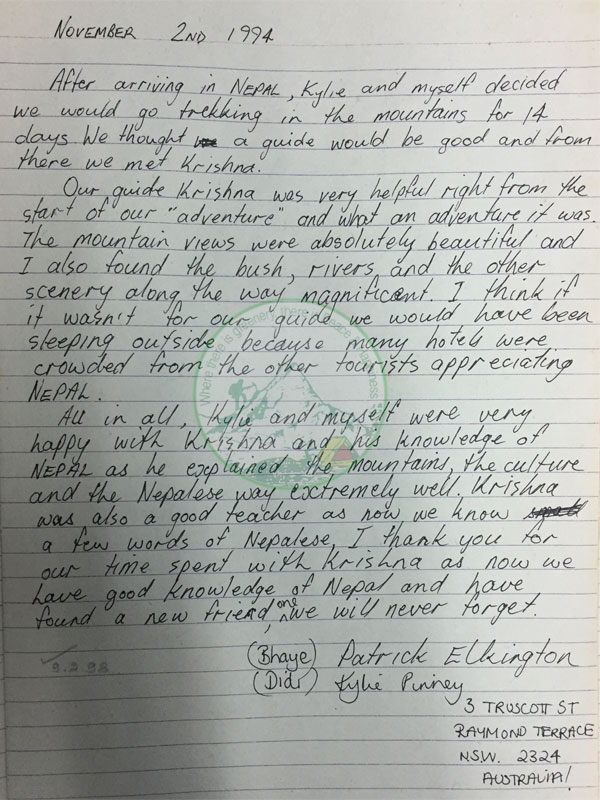 NOVEMBER 2ND 1994
After arriving in NEPAL, Kylie and myself decided
we would go trekking in the mountains for 14
days We thought a guide would be good and from
there we met Krishna.
Our guide Krishna was very helpful right from the
start of our "adventure" and what an adventure it was.
The mountain views were absolutely beautiful and
I also found the bush, rivers, and the other
scenery along the way magnificent. I think if
it wasn't for our guide we would have been
sleeping outside because many hotels were
crowded from the other tourists appreciating
NEPAL.
All in all, Kylie and myself were very
happy with Krishna and his knowledge of
NEPAL as he explained the mountains, the culture
and the Nepalese way extremely well. Krishna
was also a good teacher as now we know
a few words of Nepalese, I thank you for
our time spent with Krishna as now we
have good knowledge of Nepal and have
found a new friend, one we will never forget.
(Bhaye) Patrick Elkington
(Didi) Kylie Pinney
3 TRUSCOTT ST
RAYMOND TERRACE
NSW. 2324
AUSTRALIA!
9.2.98